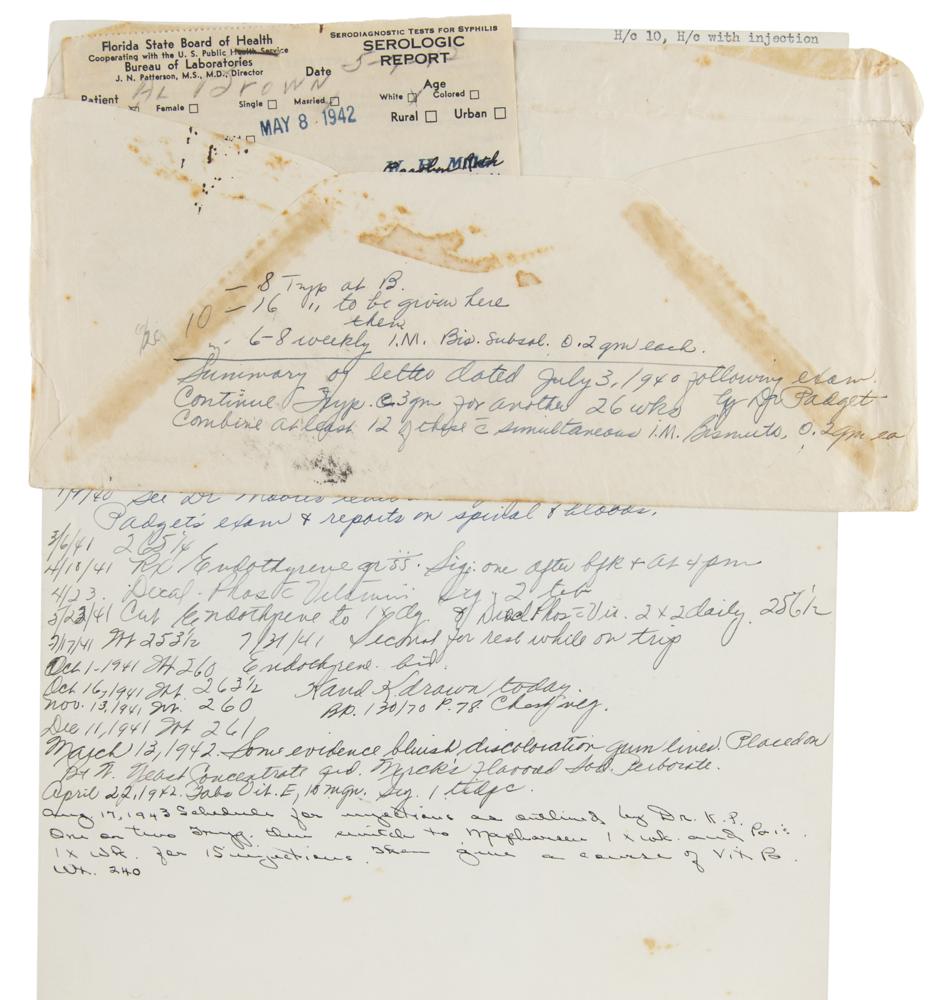 H/c 10, H/c with injection
Florida State Board of Health
Cooperating with the U. S. Public Health Service
Bureau of Laboratories
J. N. Patterson, M.S., M.D., Director
SERODIAGNOSTIC TESTS FOR SYPHILIS
SEROLOGIC
REPORT
Date
Patient AL BROWN
Age
Female Single Married White Colored
MAY 8 1942
Rural Urban
— 8 Tryp at B.
10 — 16 " to be given here
then
6-8 weekly I.M. Bis. Subsal. 0.2 gm each.
Summary of letter dated July 3, 1940 following exam.
Continue Tryp. 3gm for another 26 wks by Dr Padget
Combine at least 12 of these c̄ simultaneous I.M. Bismuth, 0.2gm ea
See Dr Moore's
Padget's exam & reports on spinal & bloods.
3/6/41 265 1/4
4/10/41 Rx Endothyrene gr ss. Sig. one after bfk + at 4 pm
4/23. Dical-Phos c̄ Vitamin Sig- 2 tid
5/23/41 Cut Endothyrene to 1 x dy Dical Phos c̄ Vit. 2 x 2 daily. 256 1/2
7/17/41 Wt 253 1/2 7/31/41 Seconal for rest while on trip
Oct 1-1941 Wt 260 Endothyrene bid.
Oct 16, 1941 Wt. 263 1/2 K drawn today.
Nov. 13, 1941 Wt. 260 B.P. 130/70 P. 78 Chest neg.
Dec 11, 1941 Wt 261
March 13, 1942. Some evidence bluish discoloration gum lines. Placed on
Yeast Concentrate and Myrck's flavored Sod. Perborate.
April 22, 1942. Tabs Vit. E, 10 mgm. Sig. 1 t.i.d.p.c.
Aug 17, 1943 Schedule for injections as outlined by Dr. K. P.
One or two Tryp. then switch to Mapharsen 1 x wk. and Bis.
1 x wk. for 15 injections. Then give a course of Vit B.
Wt. 240